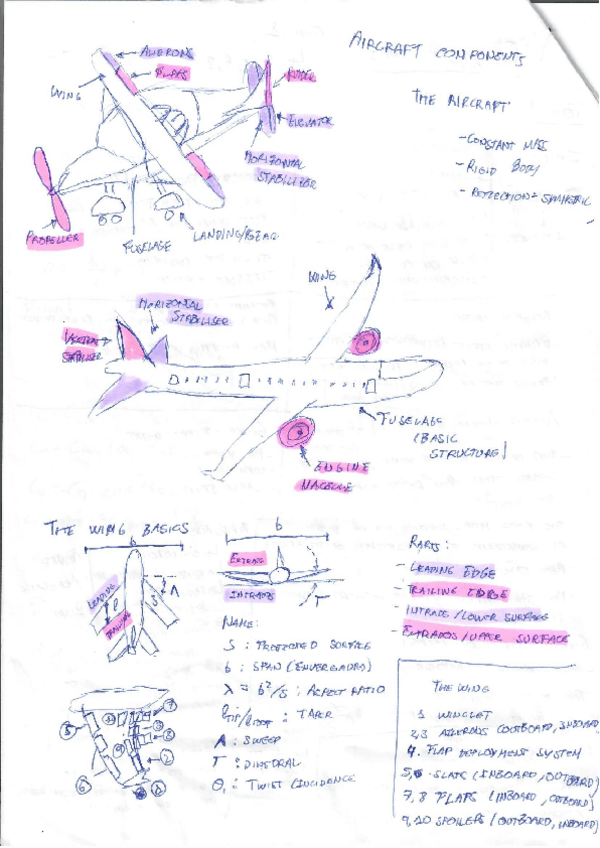 AIRCRAFT COMPONENTS
THE AIRCRAFT
- CONSTANT MASS
- RIGID BODY
- REFLECTION SYMMETRIC
AILERONS
FLAPS
WING
RUDER
ELEVATOR
HORIZONTAL
STABILIZER
PROPELLER
FUSELAGE
LANDING GEAR
WING
HORIZONTAL
STABILISER
VERTICAL
STABILISER
FUSELAGE
(BASIC
STRUCTURE)
ENGINE
NACELLE
THE WING BASICS
b
LEADING
TRAILING
Λ
b
EXTRADOS
INTRADOS
Γ
NAME:
S : PROJECTED SURFACE
b : SPAN (ENVERGADURA)
λ = b²/S : ASPECT RATIO
: TAPER
Λ : SWEEP
Γ : DIHEDRAL
Θ : TWIST / INCIDENCE
PARTS:
- LEADING EDGE
- TRAILING EDGE
- INTRADO/LOWER SURFACE
- EXTRADOS/UPPER SURFACE
7
5
3
8
2
6
THE WING
1 WINGLET
2,3 AILERONS (OUTBOARD, INBOARD)
4. FLAP DEPLOYMENT SYSTEM
5,6 SLATS (INBOARD, OUTBOARD)
7,8 FLAPS (INBOARD, OUTBOARD)
9,10 SPOILERS (OUTBOARD, INBOARD)